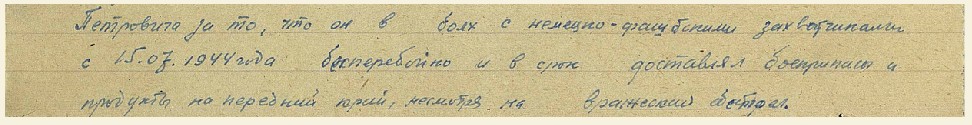 Петровича за то, что он в боях с немецко-фашистскими захватчиками
с 15.07.1944 года бесперебойно и в срок доставлял боеприпасы и
продукты на передний край, несмотря на вражеский обстрел.